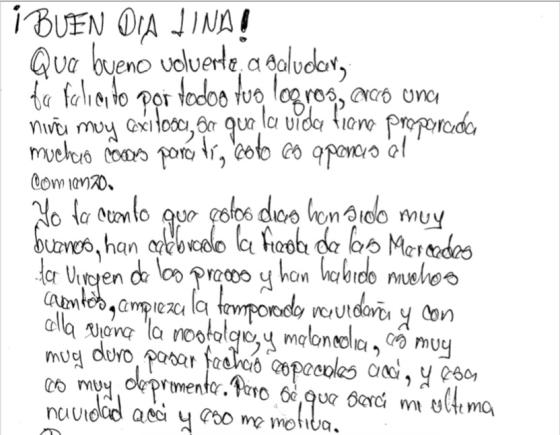 ¡BUEN DIA LINA!
Que bueno volverte a saludar,
te felicito por todos tus logros, eres una
niña muy exitosa, se que la vida tiene preparada
muchas cosas para ti, esto es apenas el
comienzo.
Yo te cuento que estos dias han sido muy
buenos, han celebrado la fiesta de las Mercedes
la Virgen de los presos y han habido muchos
eventos, empieza la temporada navideña y con
ella viene la nostalgia, y melancolia, es muy
muy duro pasar fechas especiales acá, y esa
es muy deprimente. Pero sé que será mi última
navidad acá y eso me motiva.